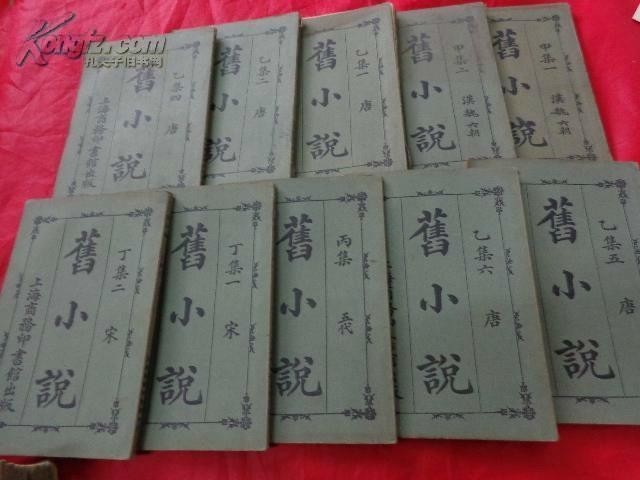 Kongfz.com
孔夫子旧书网
甲集一 漢魏六朝
舊小說
甲集二 漢魏六朝
舊小說
乙集一 唐
舊小說
乙集二 唐
舊小說
乙集四 唐
舊小說
上海商務印書館出版
乙集五 唐
舊小說
乙集六 唐
舊小說
丙集 五代
舊小說
丁集一 宋
舊小說
丁集二 宋
舊小說
上海商務印書館出版